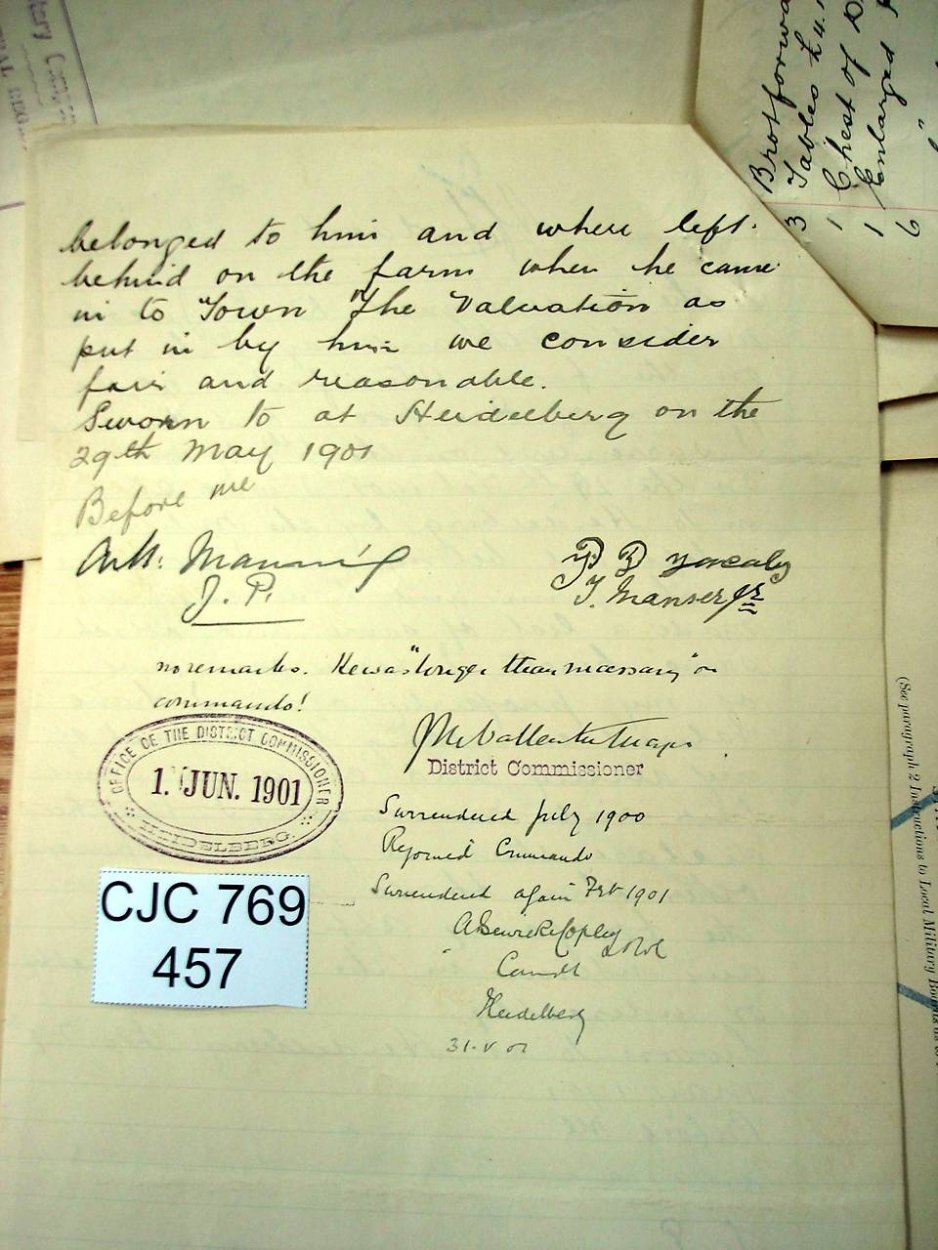 belonged to him and where left.
behind on the farm when he came
in to Town The Valuation as
put in by him we consider
fair and reasonable.
Sworn to at Heidelberg on the
29th May 1901
Before me
Manning
J. P.
P
T. Manser jr
no remarks. He was "longer than necessary" on
commando!
District Commissioner
OFFICE OF THE DISTRICT COMMISSIONER
1. JUN. 1901
HEIDELBERG.
Surrendered July 1900
Rejoined Commando
Surrendered again Feb 1901
Copley
Comdt
Heidelberg
31.V 01
CJC 769
457
Brotforwa
3 Tables £4.
1 Chest of
1 Enlarged
9
(See paragraph 2 Instructions to Local Military